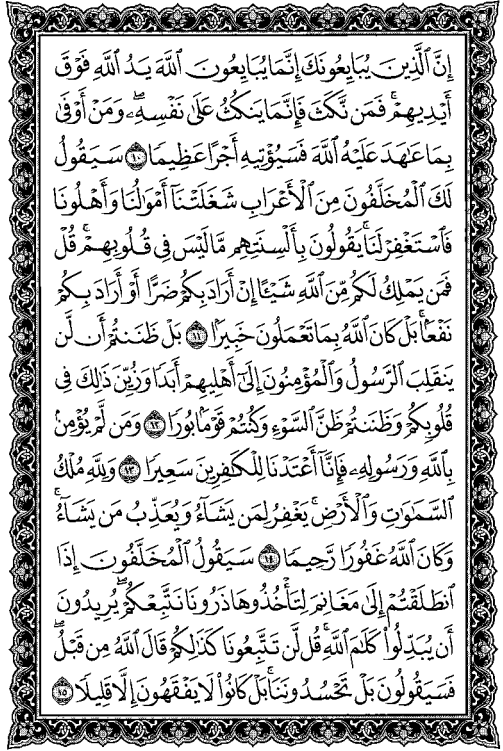 إِنَّ ٱلَّذِينَ يُبَايِعُونَكَ إِنَّمَا يُبَايِعُونَ ٱللَّهَ يَدُ ٱللَّهِ فَوْقَ
أَيْدِيهِمْ ۚ فَمَن نَّكَثَ فَإِنَّمَا يَنكُثُ عَلَىٰ نَفْسِهِۦ ۖ وَمَنْ أَوْفَىٰ
بِمَا عَٰهَدَ عَلَيْهُ ٱللَّهَ فَسَيُؤْتِيهِ أَجْرًا عَظِيمًا ١٠ سَيَقُولُ
لَكَ ٱلْمُخَلَّفُونَ مِنَ ٱلْأَعْرَابِ شَغَلَتْنَآ أَمْوَٰلُنَا وَأَهْلُونَا
فَٱسْتَغْفِرْ لَنَا ۚ يَقُولُونَ بِأَلْسِنَتِهِم مَّا لَيْسَ فِى قُلُوبِهِمْ ۚ قُلْ
فَمَن يَمْلِكُ لَكُم مِّنَ ٱللَّهِ شَيْـًٔا إِنْ أَرَادَ بِكُمْ ضَرًّا أَوْ أَرَادَ بِكُمْ
نَفْعًۢا ۚ بَلْ كَانَ ٱللَّهُ بِمَا تَعْمَلُونَ خَبِيرًۢا ١١ بَلْ ظَنَنتُمْ أَن لَّن
يَنقَلِبَ ٱلرَّسُولُ وَٱلْمُؤْمِنُونَ إِلَىٰٓ أَهْلِيهِمْ أَبَدًا وَزُيِّنَ ذَٰلِكَ فِى
قُلُوبِكُمْ وَظَنَنتُمْ ظَنَّ ٱلسَّوْءِ وَكُنتُمْ قَوْمًۢا بُورًا ١٢ وَمَن لَّمْ يُؤْمِنۢ
بِٱللَّهِ وَرَسُولِهِۦ فَإِنَّآ أَعْتَدْنَا لِلْكَٰفِرِينَ سَعِيرًا ١٣ وَلِلَّهِ مُلْكُ
ٱلسَّمَٰوَٰتِ وَٱلْأَرْضِ ۚ يَغْفِرُ لِمَن يَشَآءُ وَيُعَذِّبُ مَن يَشَآءُ ۚ
وَكَانَ ٱللَّهُ غَفُورًا رَّحِيمًا ١٤ سَيَقُولُ ٱلْمُخَلَّفُونَ إِذَا
ٱنطَلَقْتُمْ إِلَىٰ مَغَانِمَ لِتَأْخُذُوهَا ذَرُونَا نَتَّبِعْكُمْ ۖ يُرِيدُونَ
أَن يُبَدِّلُوا۟ كَلَٰمَ ٱللَّهِ ۚ قُل لَّن تَتَّبِعُونَا كَذَٰلِكُمْ قَالَ ٱللَّهُ مِن قَبْلُ ۖ
فَسَيَقُولُونَ بَلْ تَحْسُدُونَنَا ۚ بَلْ كَانُوا۟ لَا يَفْقَهُونَ إِلَّا قَلِيلًا ١٥